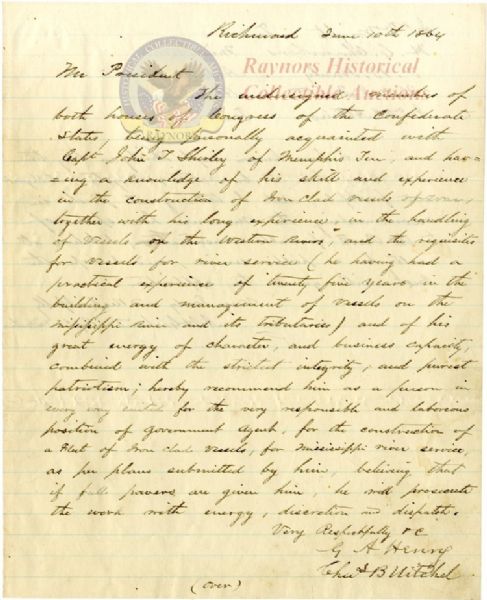 Richmond June 10th 1864
Mr President
The undersigned members of
both houses of Congress of the Confederate
States, being personally acquainted with
Capt. John T. Shirley of Memphis Ten. and hav=
=ing a knowledge of his skill and experience
in the construction of Iron Clad vessels of war,
together with his long experience in the handling
of vessels on the Western Rivers, and the requisites
for vessels for river service (he having had a
practical experience of twenty five years in the
building and management of vessels on the
Mississippi river and its tributaries) and of his
great energy of character, and business capacity,
combined with the strictest integrity, and purest
patriotism; hereby recommend him as a person in
every way suited for the very responsible and laborious
position of Government Agent, for the construction of
a Fleet of Iron Clad Vessels, for Mississippi river service,
as per plans submitted by him, believing that
if full powers are given him, he will prosecute
the work with energy, discretion and dispatch.
Very Respectfully &c
G A Henry
Chas B Mitchel
(over)
Raynors Historical
Collectible Auctions
RAYNORS'